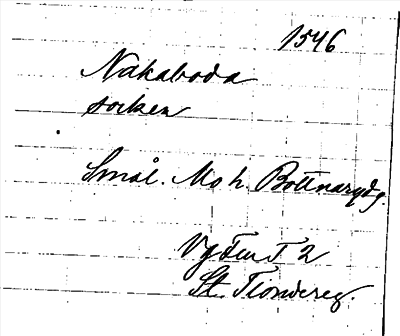 1546
Nakaboda
socken
Smål. Mo h. Bottnaryds.
2
St. Tiondereg.